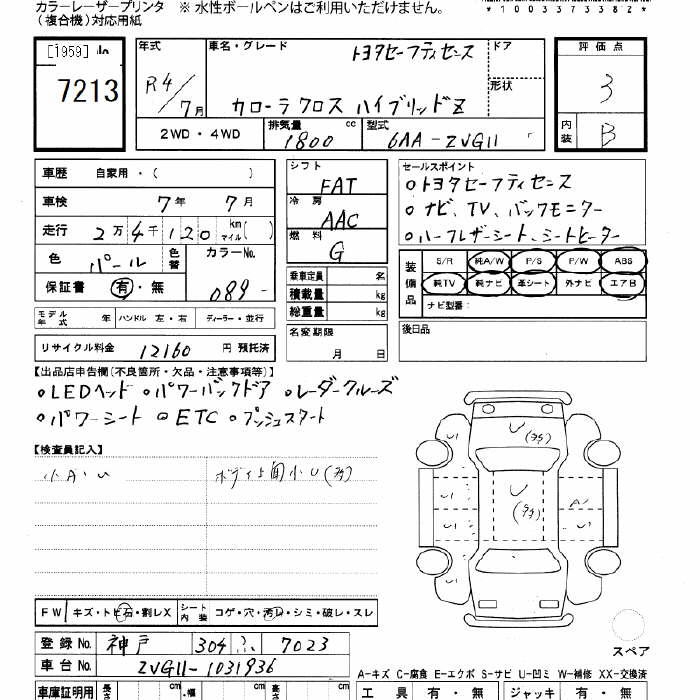 カラーレーザープリンタ ※ 水性ボールペンはご利用いただけません。
(複合機)対応用紙
*1003373382*
[1959]
7213
年式 R4/7月
車名・グレード トヨタセーフティセンス
カローラクロス ハイブリッドZ
ドア
形状
評価点 3
内装 B
2WD・4WD
排気量 1800 cc
型式 6AA-ZVG11
車歴 自家用・( )
車検 7年 7月
走行 2万4千120 km マイル( )
色 パール 色替 カラーNo. 089-
保証書 有・無
シフト FAT
冷房 AAC
燃料 G
乗車定員 名
積載量 kg
総重量 kg
セールスポイント
○トヨタセーフティセンス
○ナビ、TV、バックモニター
○ハーフレザーシート、シートヒーター
装備品 S/R 純A/W P/S P/W ABS
純TV 純ナビ 革シート 外ナビ エアB
ナビ型番:
モデル年式 年 ハンドル 左・右 ディーラー・並行
名変期限 月 日
後日品
リサイクル料金 12160 円 預託済
【出品店申告欄(不良箇所・欠品・注意事項等)】
○LEDヘッド ○パワーバックドア ○レーダークルーズ
○パワーシート ○ETC ○プッシュスタート
【検査員記入】
小A・U
ボディ上面小U(多)
U(多)
U
U(多)
U
U
A
U
FW キズ・トビ石・割レX シート内装 コゲ・穴・汚レ・シミ・破レ・スレ
登録No. 神戸 304 ふ 7023
車台No. ZVG11-1031936
スペア
A-キズ C-腐食 E-エクボ S-サビ U-凹ミ W-補修 XX-交換済
車庫証明用 長さ cm ・幅 cm 高さ cm
工具 有・無 ジャッキ 有・無